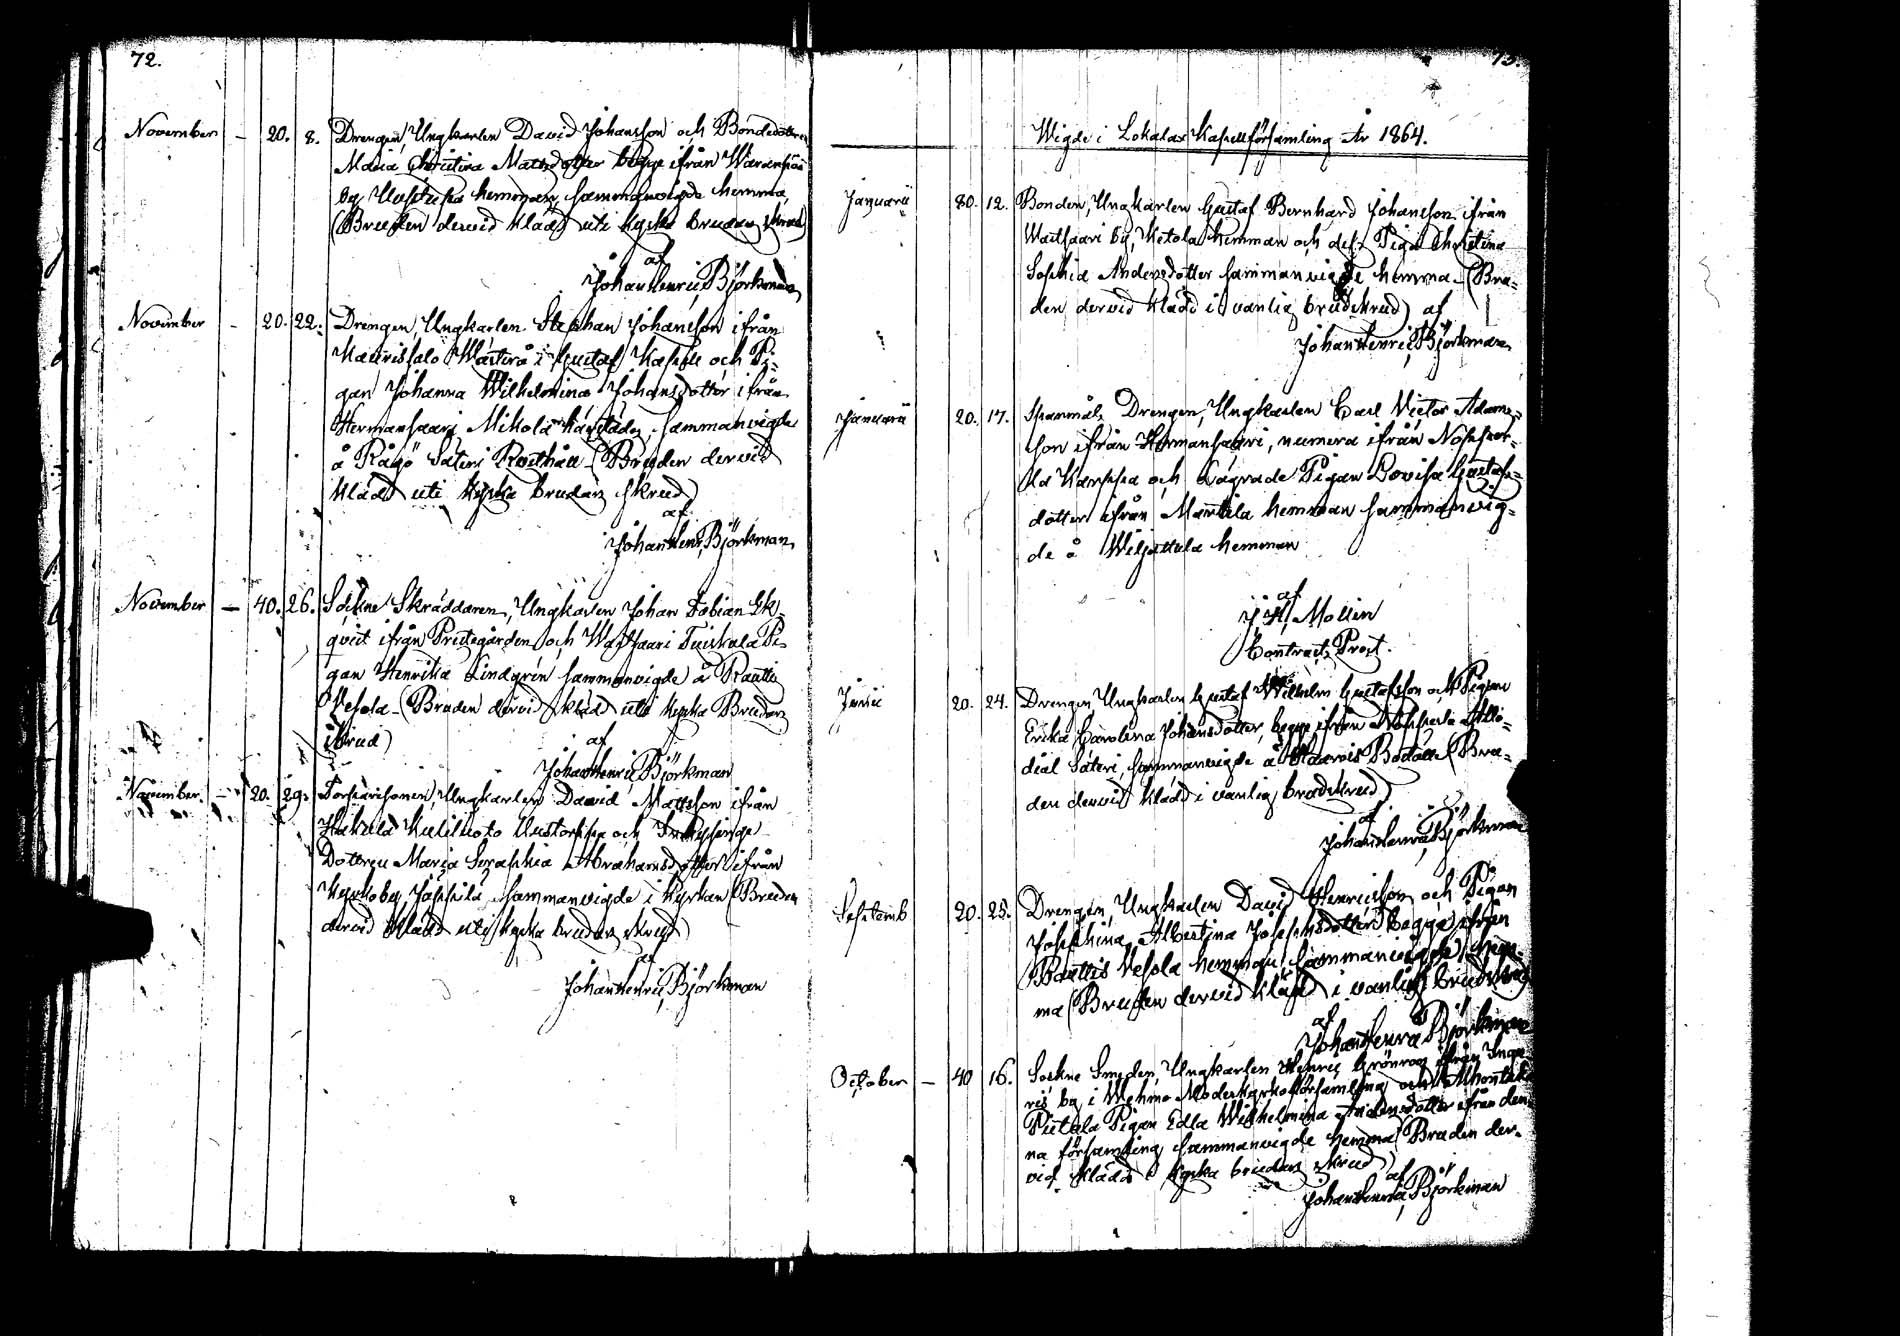 72.
November - 20. 8. Drengen, Ungkarlen David Johansson och Bondedottren
Maria Christina Mattsdotter begge ifrån
by hemman, sammanvigde hemma,
(Bruden dervid klädd uti Kyrko brudars skrud)
af
Johan Henric Björkman
November - 20. 22. Drengen, Ungkarlen Stephan Johansson ifrån
Kaurissalo i Gustaf Kapell och Pi-
gan Johanna Wilhelmina Johansdotter ifrån
Hermansaari Mikola sammanvigde
å Rågö Säteri Rusthåll (Bruden dervid
klädd uti Kyrko brudars skrud)
af
Johan Henr: Björkman
November - 40. 26. Sockne Skräddaren, Ungkarlen Johan Fabian Ek-
qvist ifrån Prestegården och Wartsaari Tuiskula Pi-
gan Henrika Lindgrén sammanvigde å Rautis
Vesola (Bruden dervid klädd uti Kyrko Brudars
skrud)
af
Johan Henric Björkman
November - 20. 29. Torparesonen, Ungkarlen David Mattsson ifrån
Hakula och Inhysinge
Dottren Maria Seraphia Abrahamsdotter ifrån
Kyrkoby Jäppilä, sammanvigde i Kyrkan (Bruden
dervid klädd uti Kyrko brudars skrud)
af
Johan Henric Björkman
73.
Wigde i Lokalax Kapellförsamling År 1864.
Januarii 80. 12. Bonden, Ungkarlen Gustaf Bernhard Johansson ifrån
Wartsaari by, Ketola hemman och dess Piga Christina
Sophia Andersdotter sammanvigde hemma (Bru-
den dervid klädd i vanlig brudskrud) af
Johan Henric Björkman
Januarii 20. 17. Spanmåls Drengen, Ungkarlen Carl Victor Adams-
son ifrån Hermansaari, numera ifrån Nopper-
la och Lägrade Pigan Lovisa Gustafs-
dotter ifrån Mantila hemman sammanvig-
de å hemman
af
J. H. Mollin
Contracts Prost.
Junii 20. 24. Drengen, Ungkarlen Gustaf Wilhelm Gustafsson och Pigan
Erika Carolina Johansdotter, begge ifrån Nopperla Allo-
dial Säteri, sammanvigde å (Bru-
den dervid klädd i vanlig brudskrud)
af
Johan Henric Björkman
Septemb 20. 25. Drengen, Ungkarlen David Henricsson och Pigan
Josephina Albertina Josephsdotter begge ifrån
Rautis Vesola hemman, sammanvigde hem-
ma (Bruden dervid klädd i vanlig brudskrud)
af
Johan Henric Björkman
October - 40 16. Sockne Smeden, Ungkarlen Henric Grönroos ifrån Inga-
ris by i Wehmo Moderkyrkoförsamling och
Pietala Pigan Edla Wilhelmina Andersdotter ifrån den-
na församling, sammanvigde hemma (Bruden der-
vid klädd i Kyrko brudars skrud)
af
Johan Henric Björkman